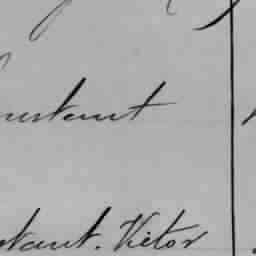 nstant
stant. Victor